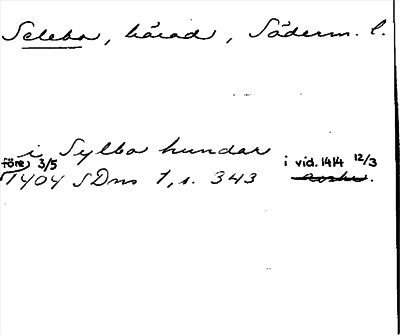 Seleba, härad, Söderm. l.
i Sylbo hundar
före 3/5 i vid. 1414 12/3
1404 SDns 1, s. 343 avskr.